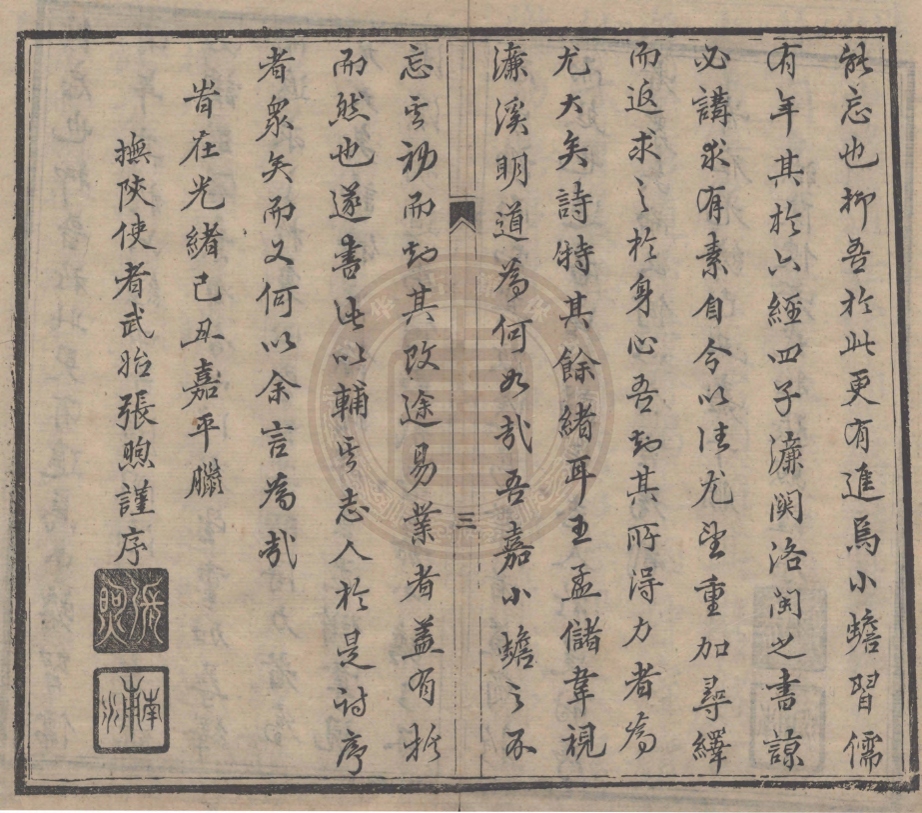 能忘也抑吾於此更有進焉小蟾習儒
有年其於六經四子濂関洛閩之書諒
必講求有素自今以往尤望重加尋繹
而返求之於身心吾知其所得力者為
尤大矣詩特其餘緒耳王孟儲韋視
濂溪明道為何如哉吾嘉小蟾之不
三
忘其初而知其改途易業者盖有所
而然也遂書此以輔其志人於是詩序
者衆矣而又何以余言為哉
旹在光緒己丑嘉平臘
撫陝使者武治張煦謹序
張煦
南浦